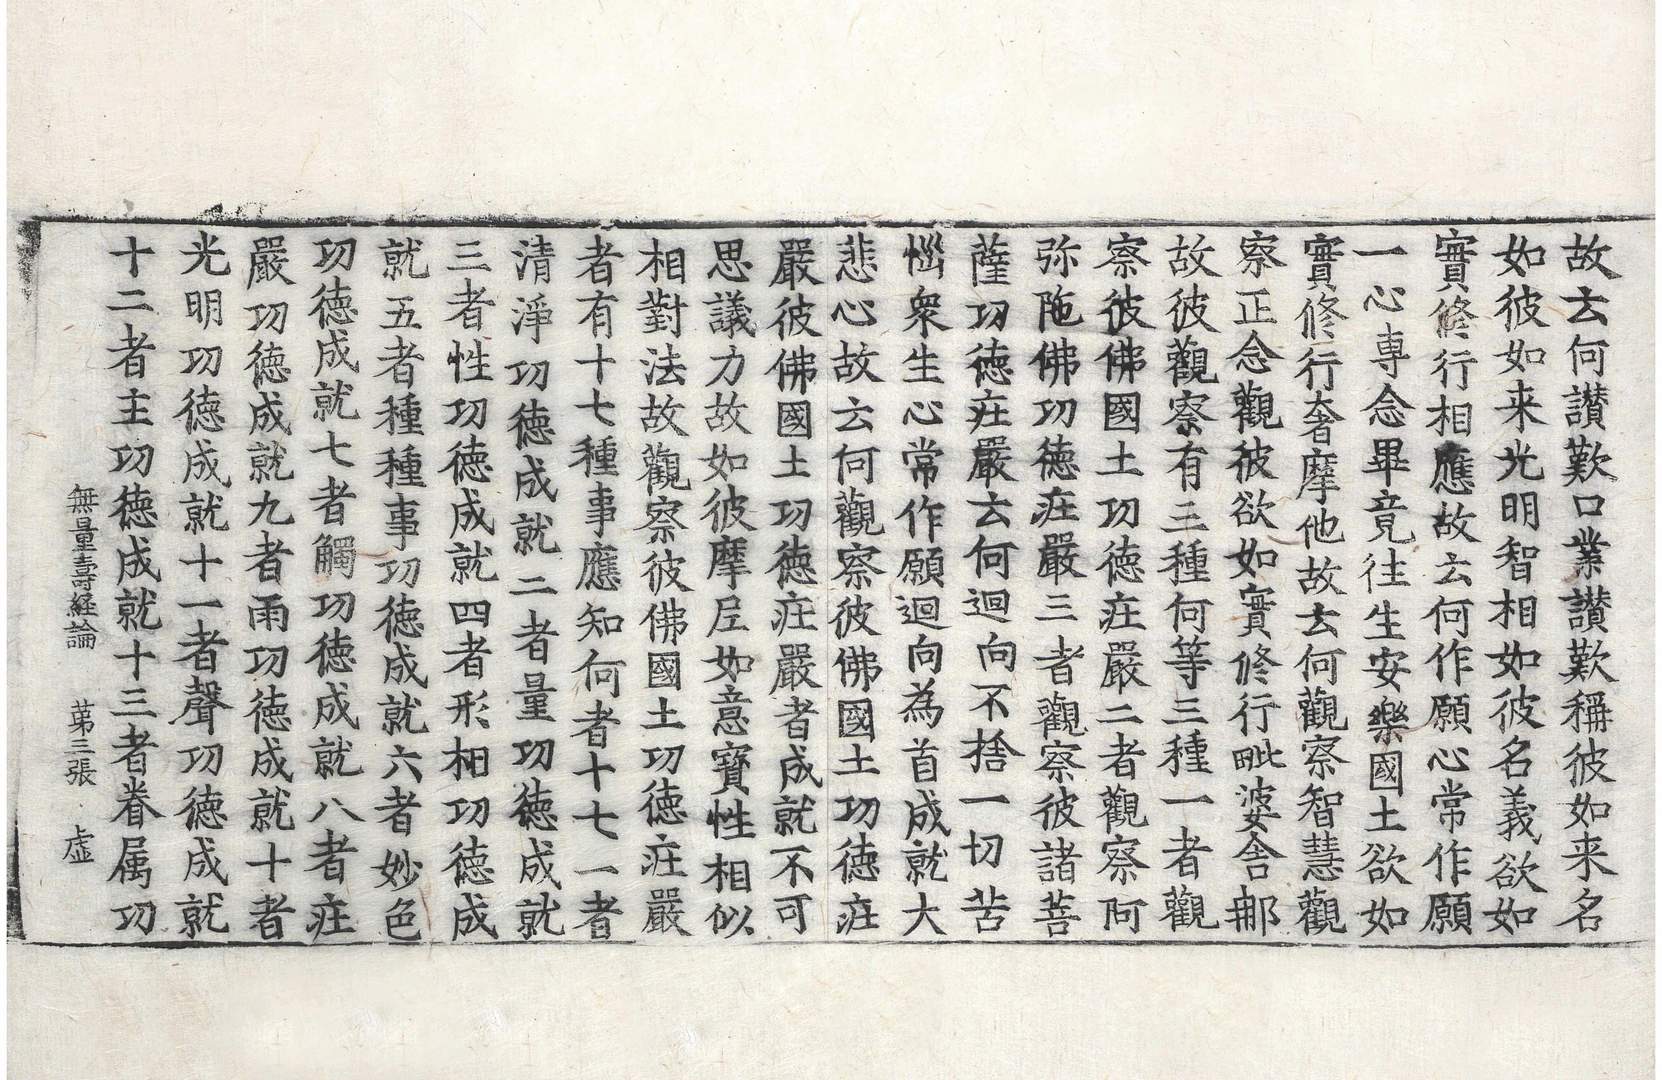 故云何讃歎口業讃歎稱彼如来名
如彼如来光明智相如彼名義欲如
實修行相應故云何作願心常作願
一心専念畢竟往生安樂國土欲如
實修行奢摩他故云何觀察智慧觀
察正念觀彼欲如實修行毗婆舍那
故彼觀察有三種何等三種一者觀
察彼佛國土功德庄嚴二者觀察阿
弥陁佛功德庄嚴三者觀察彼諸菩
薩功德庄嚴云何迴向不捨一切苦
惱衆生心常作願迴向為首成就大
悲心故云何觀察彼佛國土功德庄
嚴彼佛國土功德庄嚴者成就不可
思議力故如彼摩尼如意寶性相似
相對法故觀察彼佛國土功德庄嚴
者有十七種事應知何者十七一者
清淨功德成就二者量功德成就
三者性功德成就四者形相功德成
就五者種種事功德成就六者妙色
功德成就七者觸功德成就八者庄
嚴功德成就九者雨功德成就十者
光明功德成就十一者聲功德成就
十二者主功德成就十三者眷属功
無量壽経論 苐三張 虚